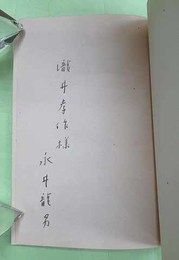 瀧井孝作様
永井龍男